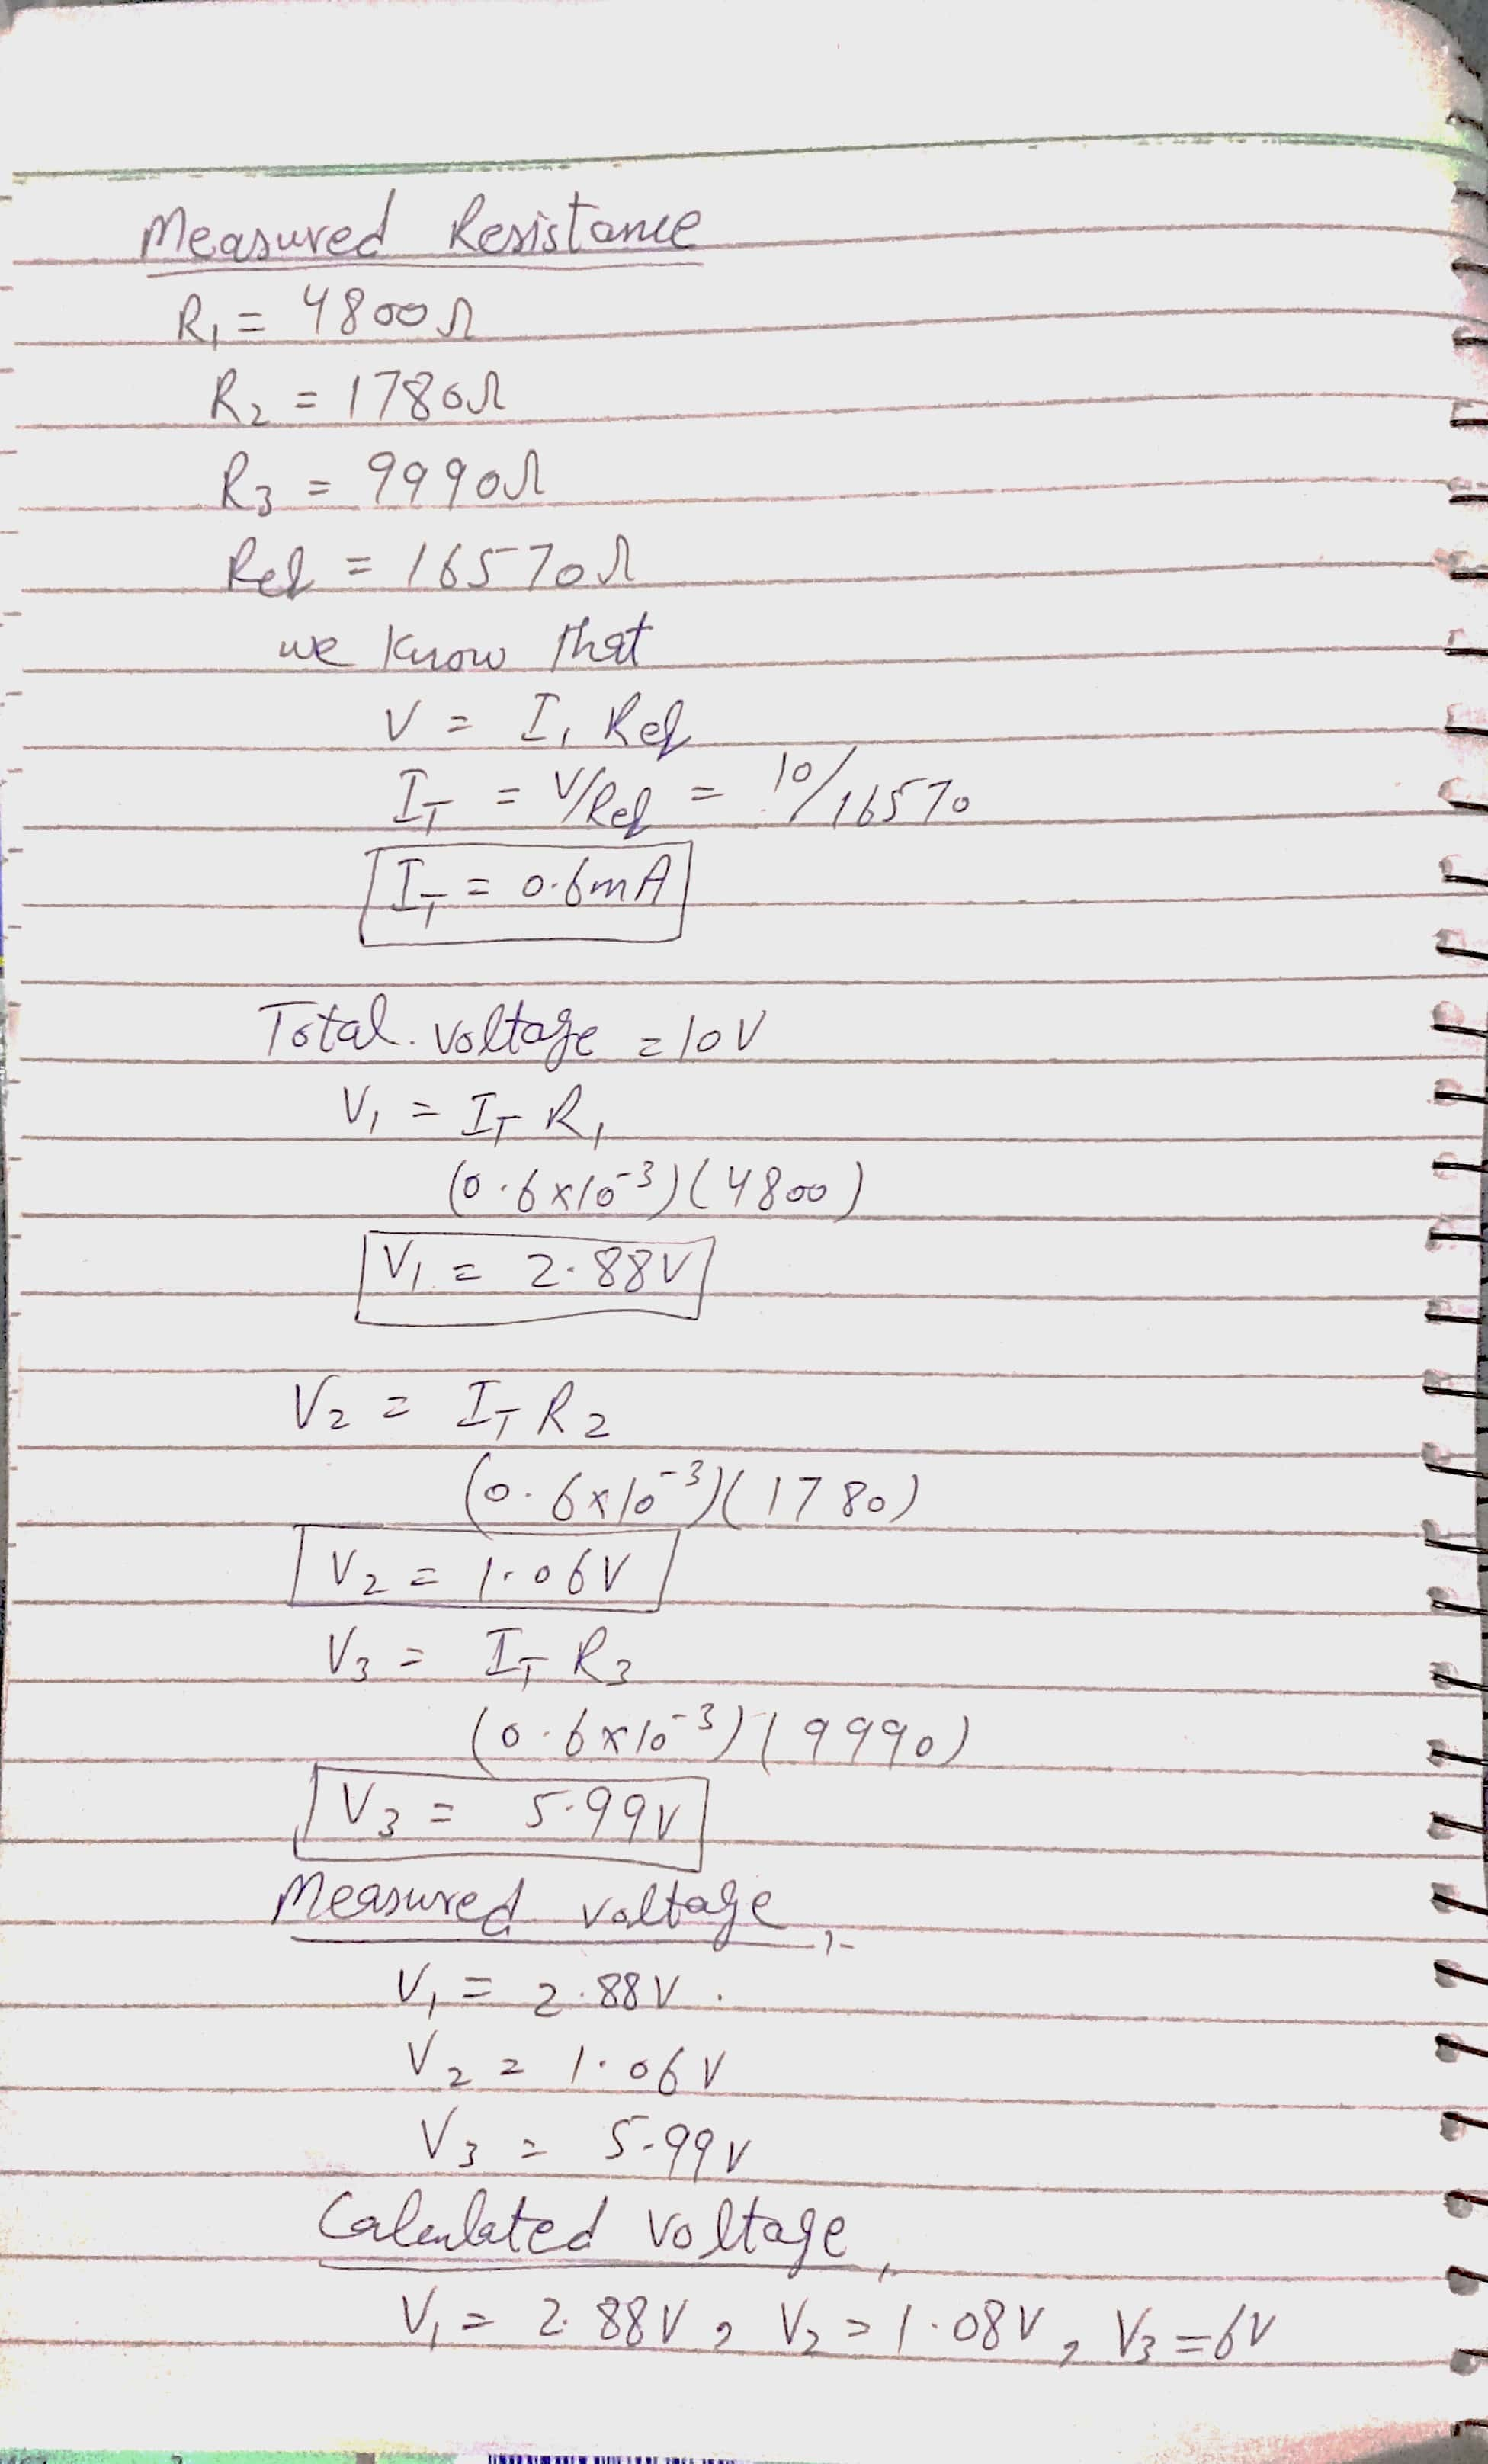 Measured Resistance
R₁ = 4800Ω
R₂ = 1780Ω
R₃ = 9990Ω
Ref = 16570Ω
we know that
V = I, Ref
I_T = V/Ref = 10/16570
I_T = 0.6mA
Total. voltage = 10V
V₁ = I_T R₁
(0.6×10⁻³)(4800)
V₁ = 2.88V
V₂ = I_T R₂
(0.6×10⁻³)(1780)
V₂ = 1.06V
V₃ = I_T R₃
(0.6×10⁻³)(9990)
V₃ = 5.99V
Measured voltage :-
V₁ = 2.88V.
V₂ = 1.06V
V₃ = 5.99V
Calculated voltage,
V₁ = 2.88V, V₂ = 1.08V, V₃ = 6V